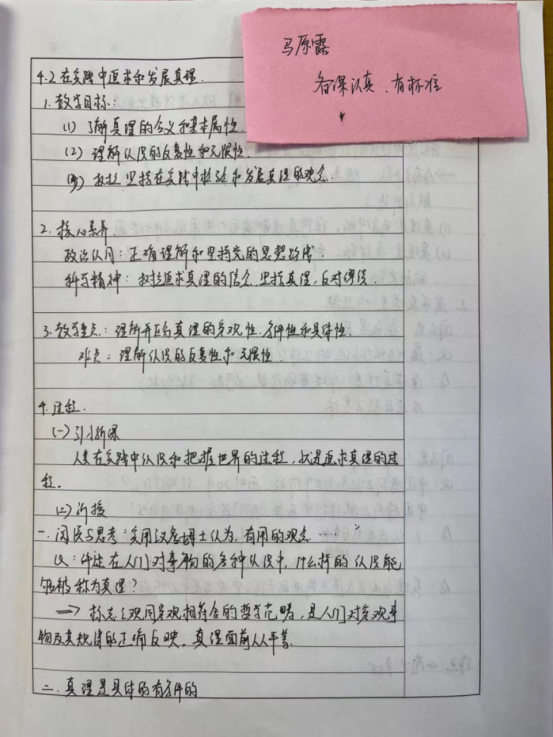 马原露
备课认真、有标准
4.2 在实践中追求和发展真理.
1. 教学目标:
(1) 了解真理的含义和基本属性.
(2) 理解认识的反复性和无限性.
(3) 树立坚持在实践中检验和发展真理的观念.
2. 核心素养
政治认同: 正确理解和坚持党的思想路线
科学精神: 树立追求真理的信念, 坚持真理, 反对谬误.
3. 教学重点: 理解并正确真理的客观性、条件性和具体性.
难点: 理解认识的反复性和无限性.
4. 过程.
(一) 引入新课
人类在实践中认识和把握世界的过程, 就是追求真理的过
程.
(二) 新授
一. 阅读与思考: 实用议者博士认为, 有用的观念……
Q: 在人们对事物的各种认识中, 什么样的认识能
够被称为真理?
→ 标志主观同客观相符合的哲学范畴, 是人们对客观事
物及其规律的正确反映. 真理面前人人平等.
二. 真理是具体的有条件的